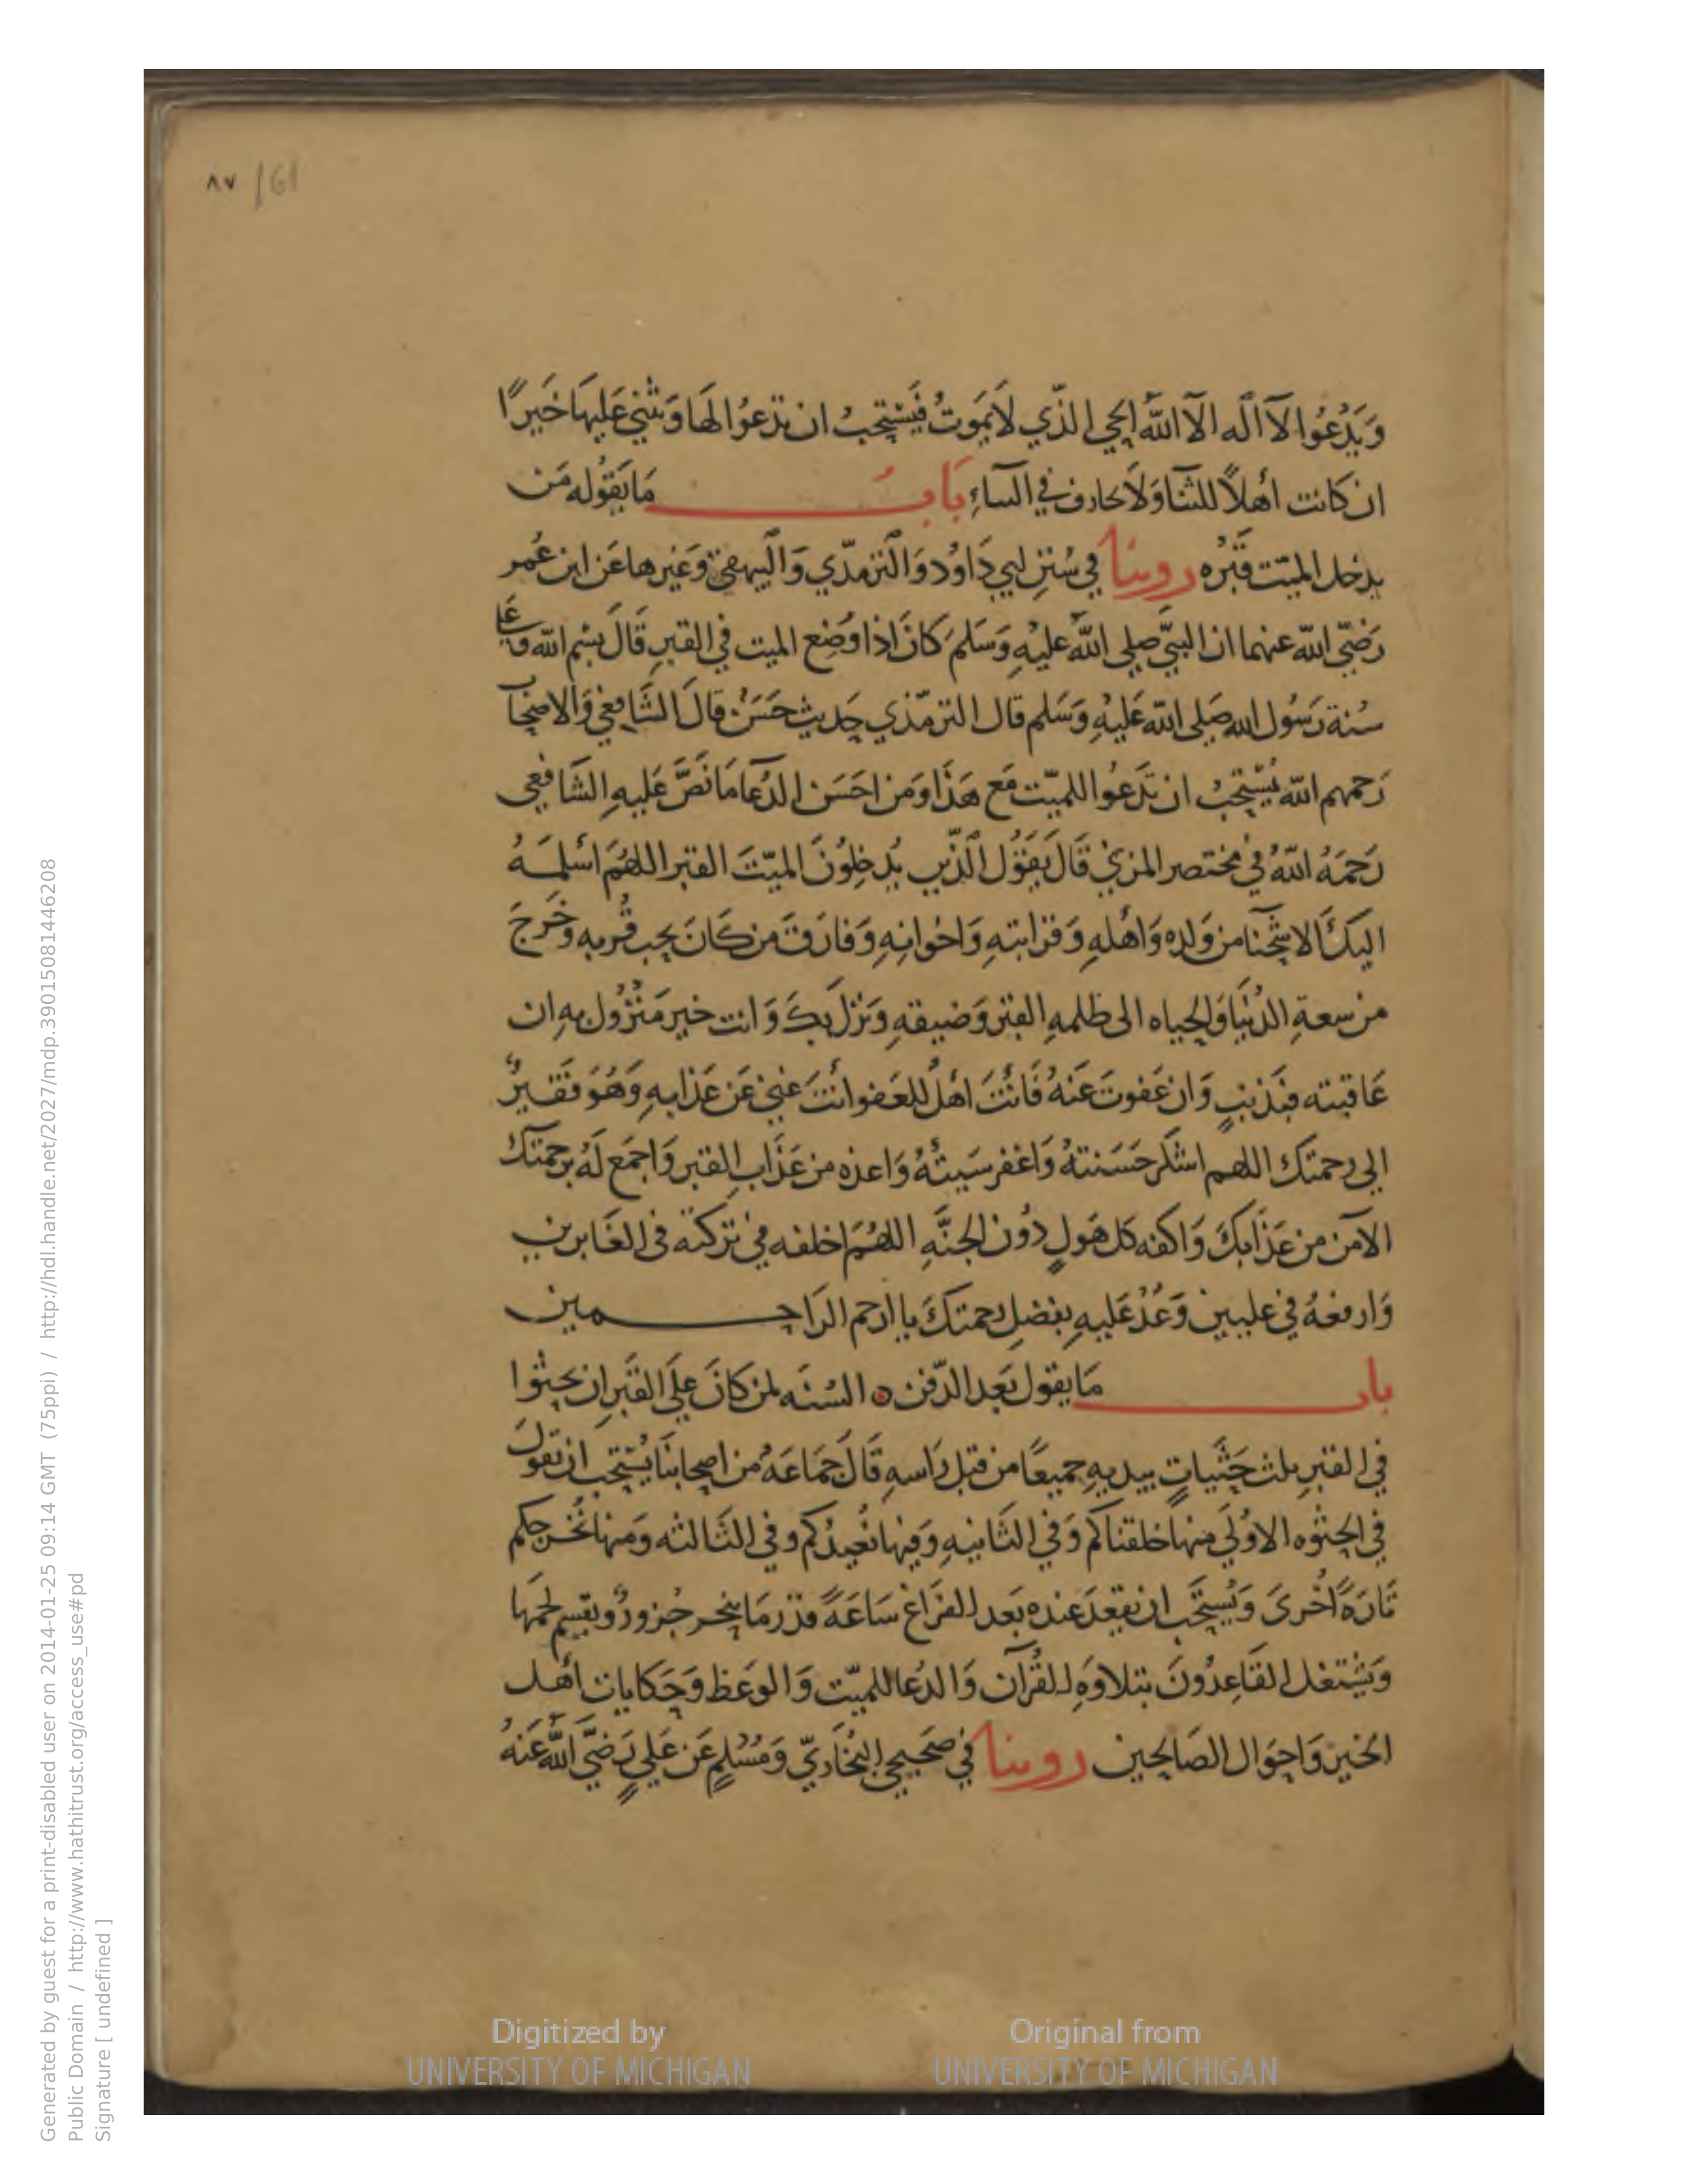 ٨٧ /61
وَيَدْعُوا لَا اله الا الله الحي الذي لا يَموتُ فَيُستحبُ ان تدعُوا لهَا وَيثني عَليهَا خَيرًا
ان كانت أهلاً للثنا وَلا تجازف في الثناءِ بَابُ مَا يَقُوله مَن
يدخل الميّت قَبْره روينا في سُنَنِ ابي دَاوُد وَالترمذّي وَالبيهقي وَغيرها عَن ابن عُمر
رَضيَ الله عنهما ان النبيّ صلى الله عليْهِ وَسَلمَ كانَ اذا وُضع الميت في القبرِ قَالَ بسْم الله وَعَلى
سُنة رَسُول الله صَلى الله عَليْهِ وَسَلم قال الترمّذي حَديث حَسَنٌ قالَ الشَّافعي وَالاصحَاب
رَحمهم الله يُسْتحبُ ان تَدعُوا للميّت مَع هَذَا وَمن احَسَن الدُعَا مَا نَصَّ عَليهِ الشَافعي
رَحمَهُ اللهُ في مختصر المزني قَالَ يَقوُل الّذين يُدخِلوُنَ الميّتَ القبر اللهُمَ اسْلمَهُ
اليكَ الاشحّا من وَلده وَاهْلهِ وَقرَابتهِ وَاخوانِهِ وَفارَقَ من كَانَ يحب قُربه وَخَرجَ
من سعةِ الدُنيَا وَالحياه الى ظلمهِ القبْر وَضيقهِ وَنزلَ بكَ وَانت خير مَنْزُولٍ بهِ ان
عَاقبته فبذنبٍ وَان عَفوتَ عَنهُ فَانْتَ اهْلُ للعَفو انْتَ غني عَن عَذابهِ وَهُوَ فقَيرٌ
الى رحمتك اللهم اشكر حَسَنتهُ وَاغفر سَيئَهُ وَاعذه من عَذَابِ القبر وَاجمَع لَهُ برحمتكَ
الامن من عَذَابكَ وَاكفه كل هَولٍ دوُن الجنَّهِ اللهُمَ اخلفه في تركته في الغَابرين
وَارفعهُ في عليين وَعُدْ عَليهِ بفضلِ رحمتكَ يا ارحم الراحـــمين
باب مَا يقول بَعد الدّفن ۞ السُنَه لمن كَانَ عَلى القَبرِ ان يحثوا
في القبر ثلث حَثيَاتٍ بيديهِ جميعًا من قبل رَاسهِ قَالَ جمَاعَهُ من اصحابنَا يُسْتحبُ ان تقولَ
في الحثوه الاوُلَى منهَا خلقناكم وَفي الثَانيهِ وَفيهَا نُعيدُكم وفي الثَالثه وَمنهَا نُخرجكم
تَارَةً أخْرى وَيُستحَّب ان يقعدَ عنده بَعد الفرَاغ سَاعَةً قدْر مَا ينحر جُزورٌ ويقسم لحمهَا
وَيشْتغل القَاعدُونَ بتلاوَهِ القُرآن وَالدُعا للميّت وَالوعَظ وَحَكايات أهْل
الخيرَ وَاحوَال الصَالحين روينا في صَحيحي البُخاريّ وَمُسْلمٍ عَن عَليٍ رَضيَ اللهُ عَنهُ
Generated by guest for a print-disabled user on 2014-01-25 09:14 GMT (75ppi) / http://hdl.handle.net/2027/mdp.39015081446208
Public Domain / http://www.hathitrust.org/access_use#pd
Signature [ undefined ]
Digitized by
UNIVERSITY OF MICHIGAN
Original from
UNIVERSITY OF MICHIGAN